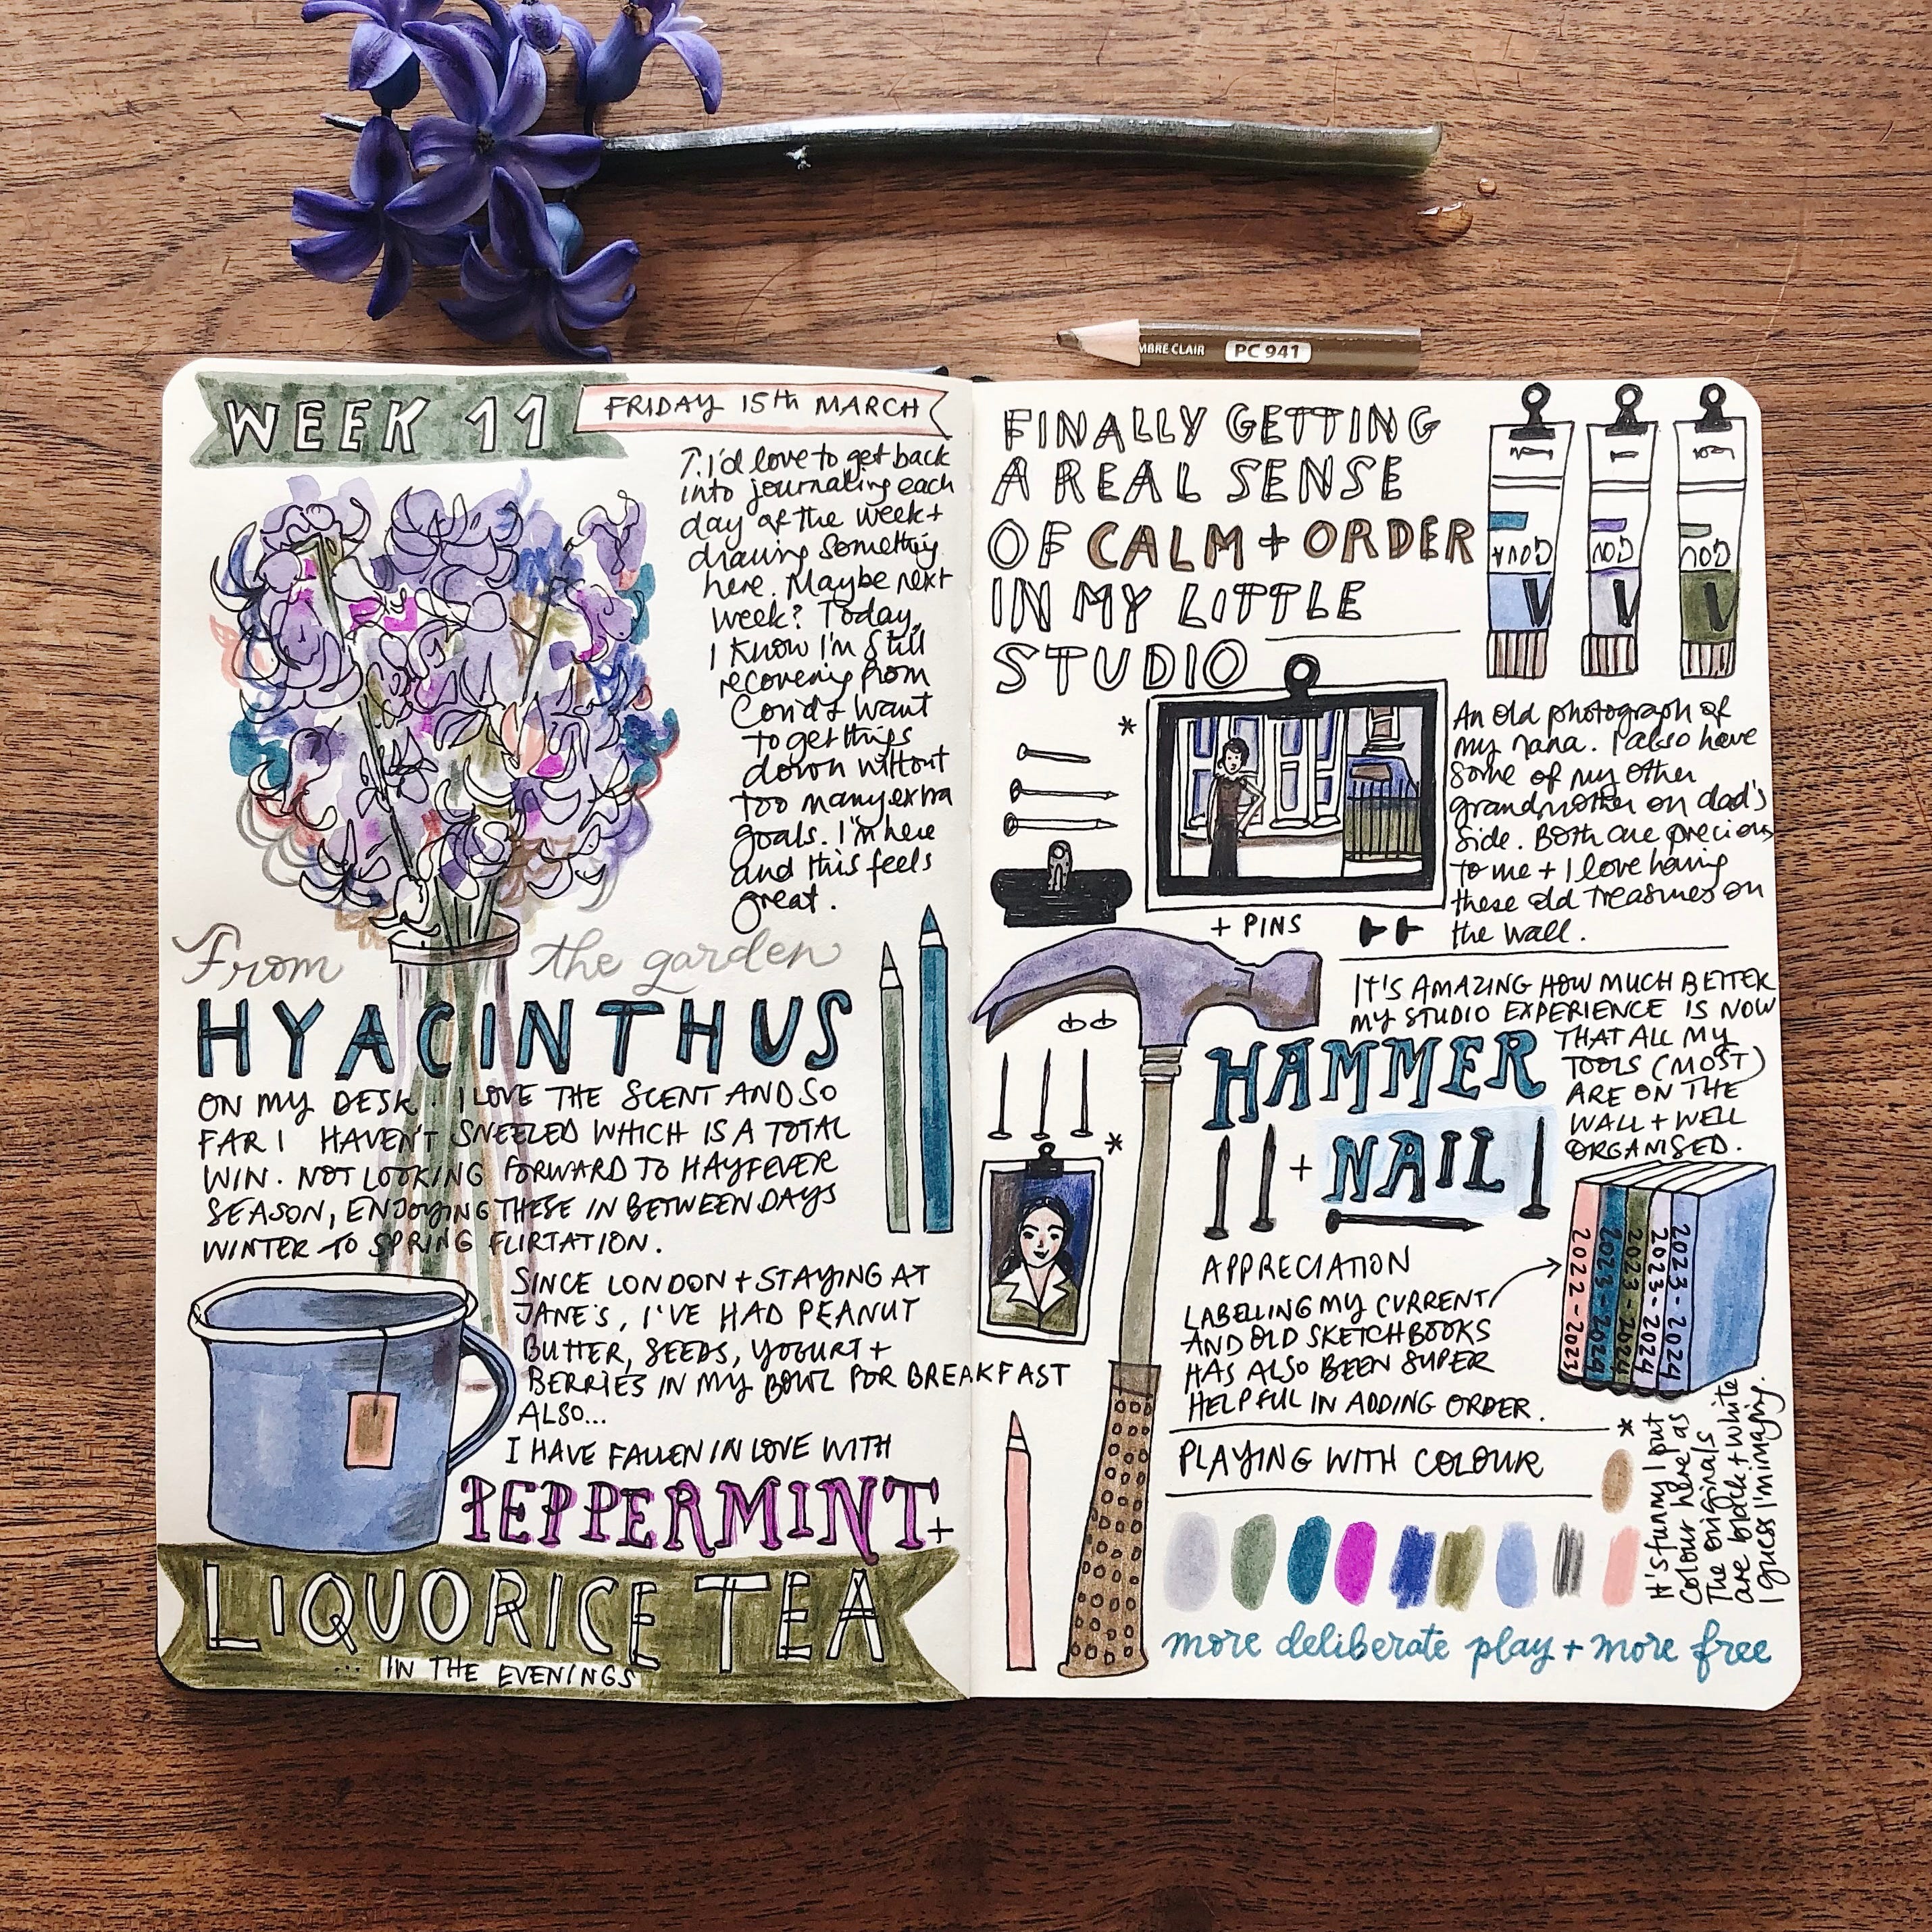 MBRE CLAIR PC 941
WEEK 11
FRIDAY 15th MARCH
↑. I'd love to get back
into journaling each
day of the week +
drawing something
here. Maybe next
week? Today,
I know I'm still
recovering from
Covid + want
to get things
down without
too many extra
goals. I'm here
and this feels
great.
From the garden
HYACINTHUS
ON MY DESK. I LOVE THE SCENT AND SO
FAR I HAVEN'T SNEEZED WHICH IS A TOTAL
WIN. NOT LOOKING FORWARD TO HAYFEVER
SEASON, ENJOYING THESE IN BETWEEN DAYS
WINTER TO SPRING FLIRTATION.
SINCE LONDON + STAYING AT
JANE'S, I'VE HAD PEANUT
BUTTER, SEEDS, YOGURT +
BERRIES IN MY BOWL FOR BREAKFAST
ALSO...
I HAVE FALLEN IN LOVE WITH
PEPPERMINT +
LIQUORICE TEA
... IN THE EVENINGS
FINALLY GETTING
A REAL SENSE
OF CALM + ORDER
IN MY LITTLE
STUDIO
GOUA
GOU
GOU
V
V
V
*
An old photograph of
my nana. I also have
some of my other
grandmother on dad's
side. Both are precious
to me + I love having
these old treasures on
the wall.
+ PINS
IT'S AMAZING HOW MUCH BETTER
MY STUDIO EXPERIENCE IS NOW
THAT ALL MY
TOOLS (MOST)
ARE ON THE
WALL + WELL
ORGANISED.
HAMMER
+ NAIL
*
APPRECIATION
LABELLING MY CURRENT
AND OLD SKETCHBOOKS
HAS ALSO BEEN SUPER
HELPFUL IN ADDING ORDER.
2022-2023
2023-2024
2023-2024
2023-2024
2023-2024
PLAYING WITH COLOUR
*
It's funny I put
colour here as
The originals
are black + white
I guess I'm imagining.
more deliberate play + more free